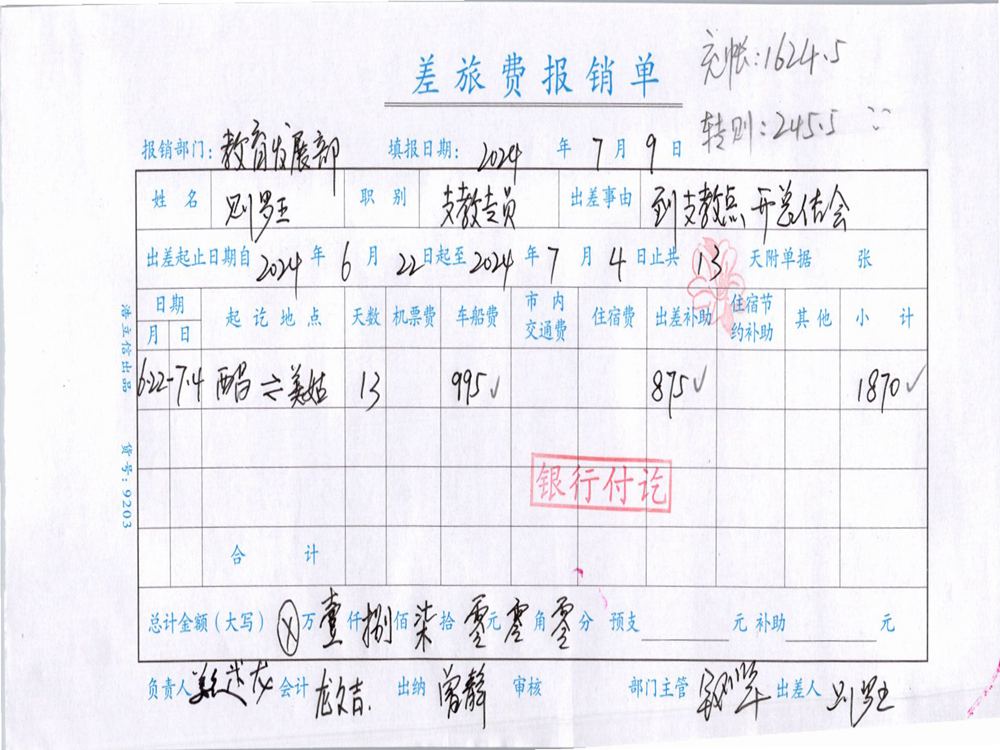 差旅费报销单
充帐:1624.5
转则:245.5
报销部门: 教育发展部 填报日期: 2024 年 7 月 9 日
姓名 职别 支教专员 出差事由 到支教点开总结会
出差起止日期自 2024 年 6 月 22 日起至 2024 年 7 月 4 日止共 13 天附单据 张
日期 起讫地点 天数 机票费 车船费 市内交通费 住宿费 出差补助 住宿节约补助 其他 小计
月 日
6.22-7.4 西昌⇌美姑 13 995✓ 875✓ 1870✓
银行付讫
合计
总计金额(大写) ⓧ万壹仟捌佰柒拾零元零角零分 预支 元 补助 元
负责人 会计 出纳 曾静 审核 部门主管 出差人
浩立信出品 货号:9203